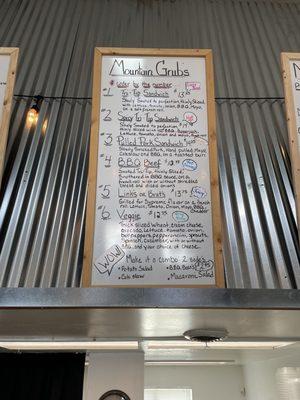 Mountain Grubs
order by the number
#1 Tri-Tip Sandwich $13.75
Slowly Smoked to perfection
lettuce, tomato, onion, BBQ, Mayo
on a soft french roll.
#2 Spicy Tri Tip Sandwich
Slowly Smoked to perfection
thinly sliced with
Lettuce, tomato, onion and mayo
#3 Pulled Pork Sandwich
Slowly Smoked Pork, Hand pulled, Mayo,
Coleslaw and BBQ, on a toasted bun
#4 B.B.Q. Beef $12.75
Smoked Tri-Tip, thinly Sliced
Smothered in BBQ sauce, on a
french roll with or without shredded
cheese and diced onions
#5 Links or Brats $13.75
Grilled for Supreme flavor on a french
roll. Lettuce, Tomato, Onion, Mayo, BBQ
#6 Veggie $12.75
Thick sliced Wheat, cream cheese
avocado, Lettuce, tomato, onion,
bell peppers, pepperoncini, sprouts,
Spinach, Cucumber, with or without
BBQ, and your choice of Cheese.
WOW
Make it a combo 2 sides
• Potato Salad
• BBQ Beans
• Cole slaw
• Macaroni Salad